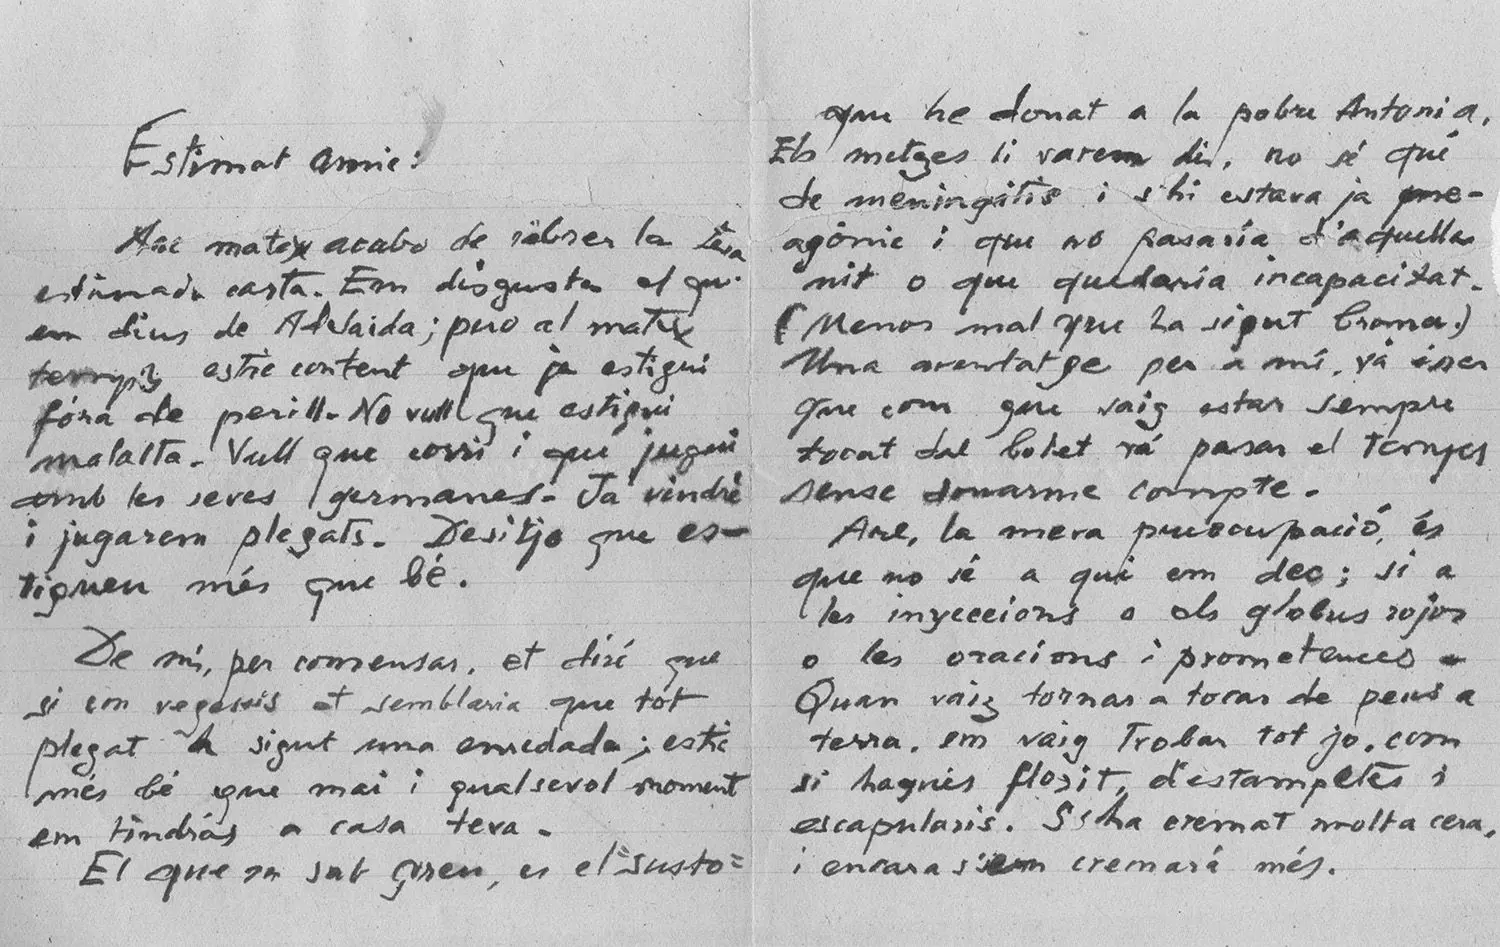 Estimat amic:
Are mateix acabo de rebrer la teva
estimada carta. Em disgusta el que
em dius de Adelaida; pero al mateix
temps estic content que ja estigui
fóra de perill. No vull que estigui
malalta. Vull que corri i que jugui
amb les seves germanes. Ja vindré
i jugarem plegats. Desitjo que es-
tigueu més que bé.
De mi, per comensar, et diré que
si em vegessis et semblaria que tot
plegat ha sigut una enredada; estic
més bé que mai i qualsevol moment
em tindrás a casa teva.
El que em sab greu, es el "susto"
que he donat a la pobre Antonia.
Els metges li varem dir, no sé qué
de meningitis i s'hi estava ja pre-
agònic i que no pasaría d'aquella
nit o que quedaría incapacitat.
(Menos mal que ha sigut broma.)
Una aventatge per a mí, vá ésser
que com que vaig estar sempre
tocat del bolet vá pasar el temps
sense donarme compte.
Are, la meva preocupació, és
que no sé a qui em dec; si a
les inyeccions o els globus rojos
o les oracions i prometences.
Quan vaig tornar a tocar de peus a
terra, em vaig trobar tot jo, com
si hagués florit, d'estampetes i
escapularis. S'ha cremat molta cera,
i encara s'em cremará més.